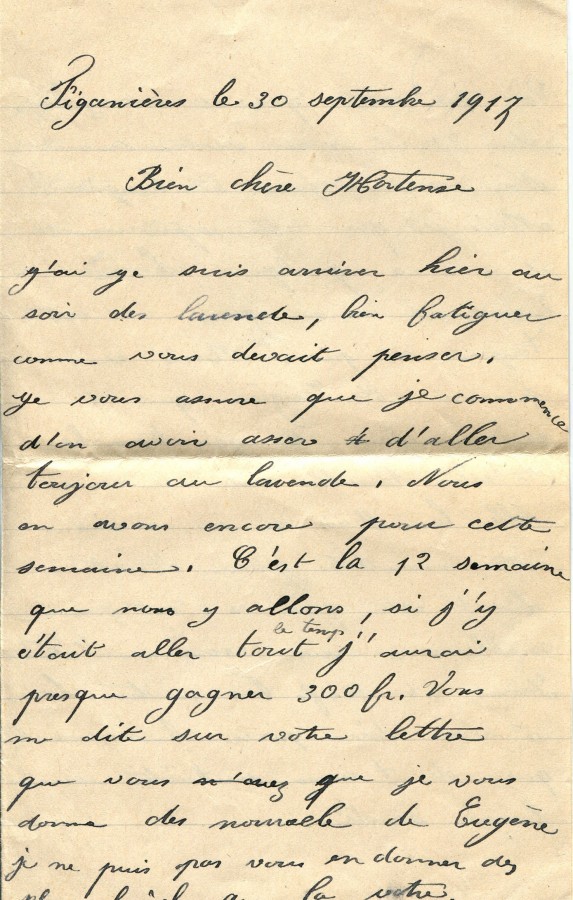 Figanières le 30 septembre 1917
Bien chère Hortense
y'ai ye suis arriver hier au
soir des lavende, bien fatiguer
comme vous devait penser.
ye vous assure que je commence
d'en avoir asser d'aller
toujour au lavende. Nous
en avons encore pour cette
semaine. C'est la 12 semaine
que nous y allons, si j'y
était aller tout le temp j'aurai
presque gagner 300 fr. Vous
me dite sur votre lettre
que vous n'avez que je vous
donne des nouvelle de Eugène
je ne puis pas vous en donner des
la votre.